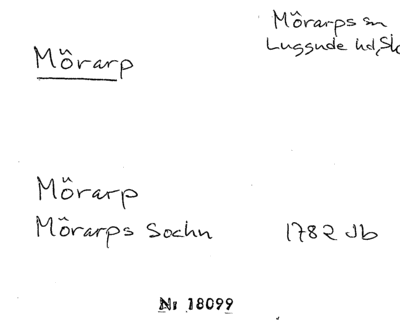 Mörarp
Mörarps sn
Luggude hd, Sk
Mörarp
Mörarps Sochn 1782 Jb
Nr 18099